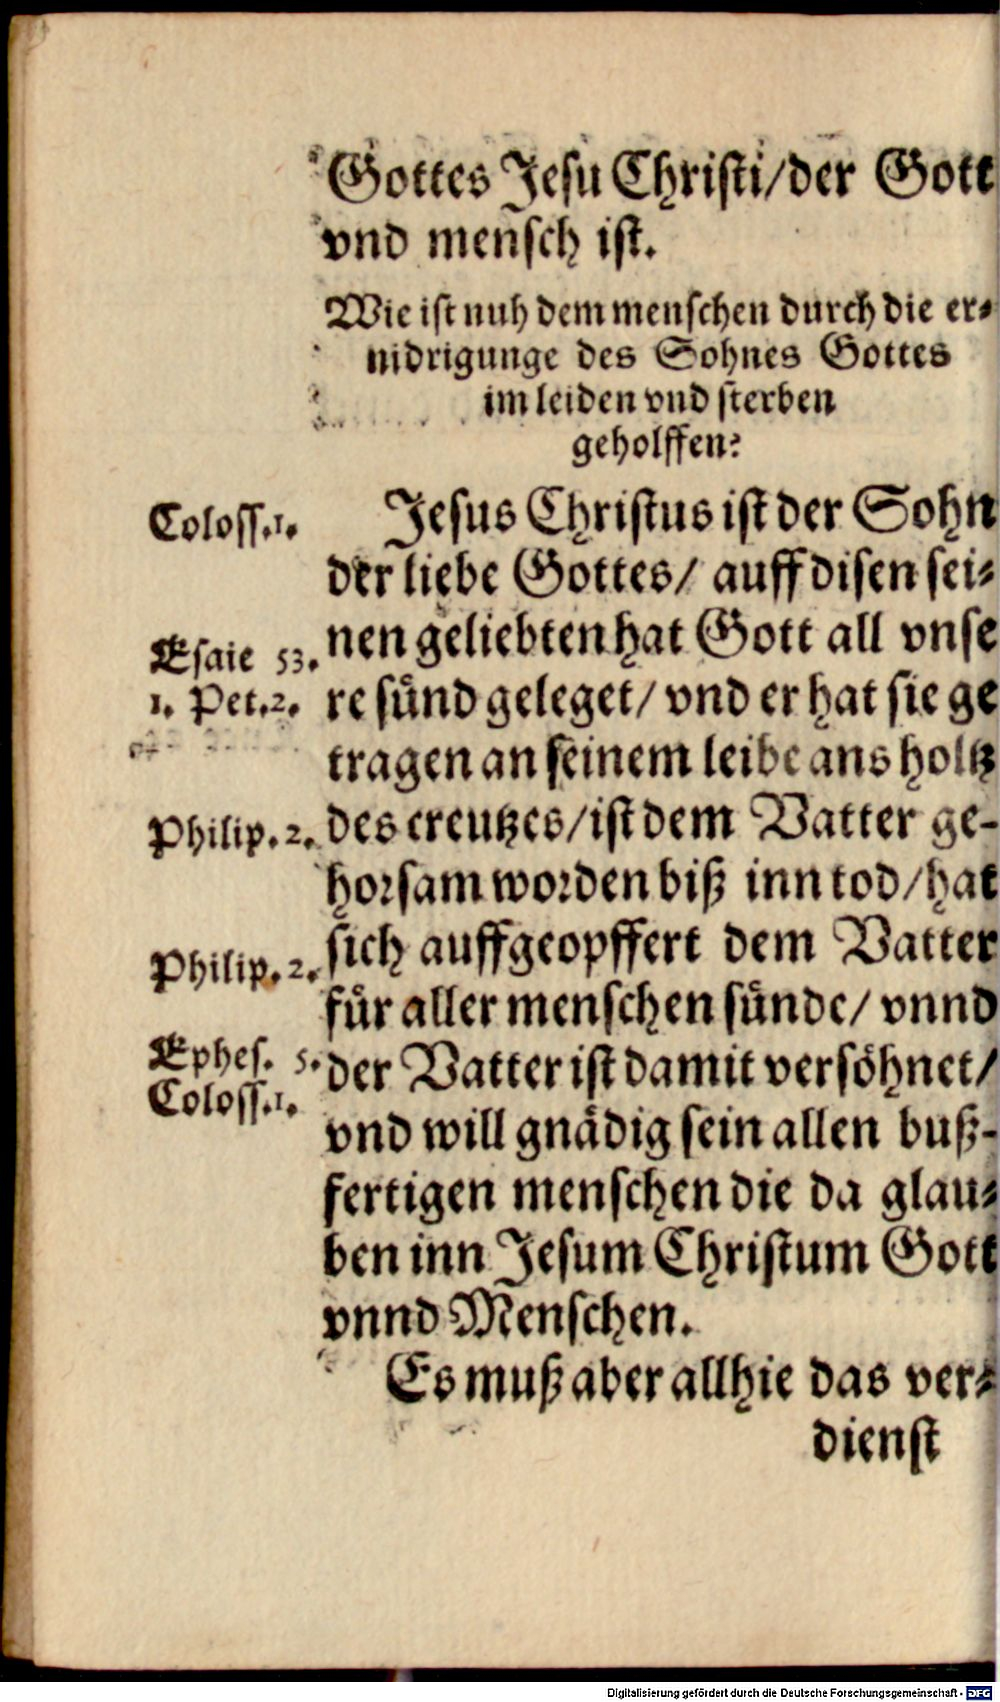 Gottes Jesu Christi/der Gott
vnd mensch ist.
Wie ist nuh dem menschen durch die er⸗
nidrigunge des Sohnes Gottes
im leiden vnd sterben
geholffen?
Coloss.1.
Jesus Christus ist der Sohn
der liebe Gottes/ auff disen sei⸗
Esaie 53.
nen geliebten hat Gott all vnse
1. Pet.2.
re sünd geleget/ vnd er hat sie ge
tragen an seinem leibe ans holtz
Philip.2.
des creutzes/ist dem Vatter ge-
horsam worden biß inn tod/hat
Philip.2.
sich auffgeopffert dem Vatter
für aller menschen sünde/ vnnd
Ephes. 5.
der Vatter ist damit versöhnet/
Coloss.1.
vnd will gnädig sein allen buß-
fertigen menschen die da glau⸗
ben inn Jesum Christum Gott
vnnd Menschen.
Es muß aber allhie das ver⸗
dienst
Digitalisierung gefördert durch die Deutsche Forschungsgemeinschaft - DFG